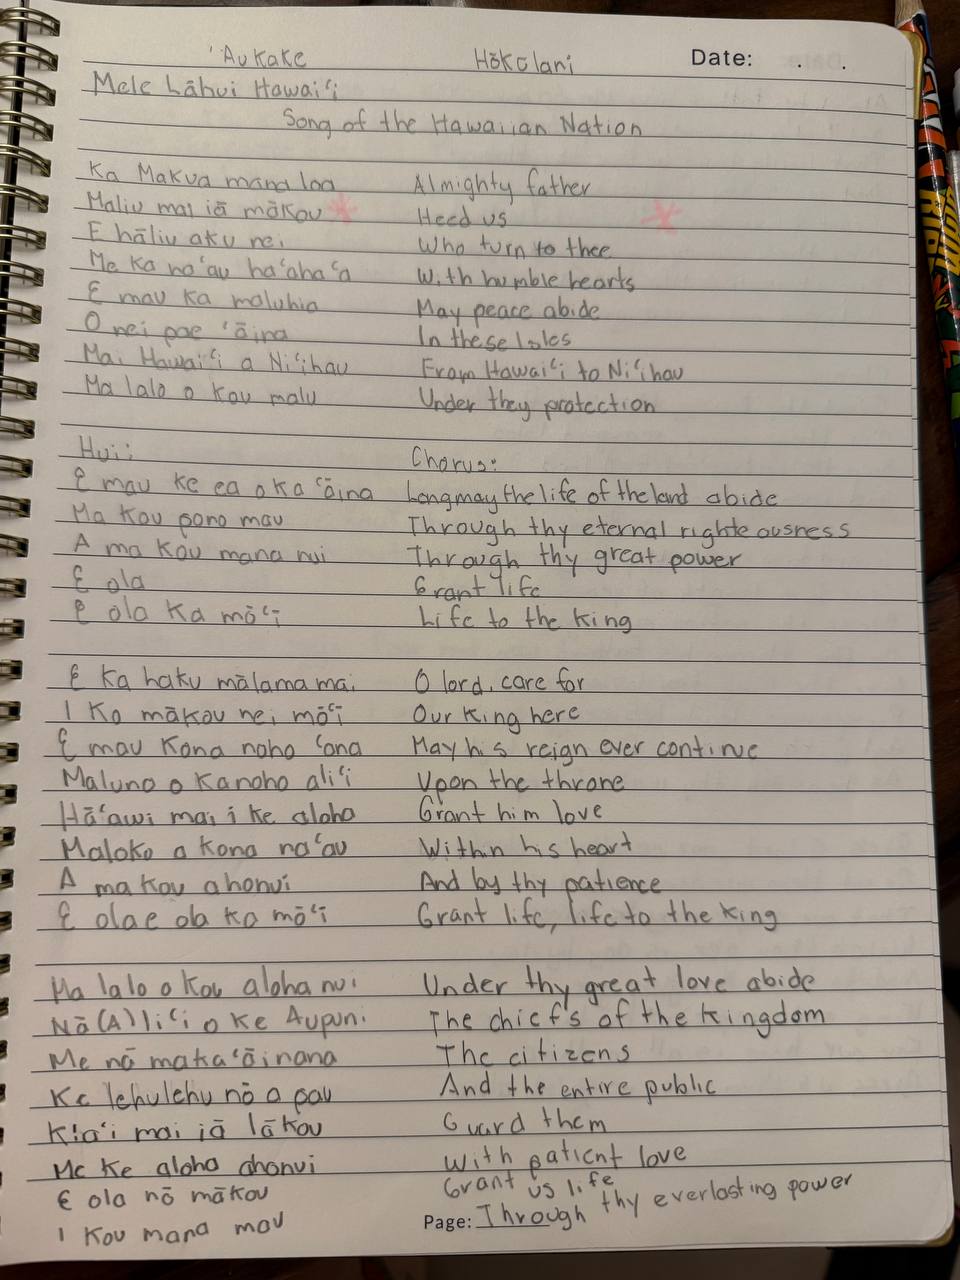 ʻAukake Hōkūlani Date: . .
Mele Lāhui Hawaiʻi
Song of the Hawaiian Nation
Ka Makua mana loa Almighty father
Maliu mai iā mākou Heed us
E hāliu aku nei Who turn to thee
Me ka naʻau haʻahaʻa With humble hearts
E mau ka maluhia May peace abide
O nei pae ʻāina In these Isles
Mai Hawaiʻi a Niʻihau From Hawaiʻi to Niʻihau
Ma lalo o kou malu Under they protection
Hui: Chorus:
E mau ke ea o ka ʻāina Long may the life of the land abide
Ma kou pono mau Through thy eternal righteousness
A ma kou mana nui Through thy great power
E ola Grant life
E ola ka mōʻī Life to the king
E ka haku mālama mai O lord, care for
I ko mākou nei mōʻī Our king here
E mau kona noho ʻana May his reign ever continue
Maluna o ka noho aliʻi Upon the throne
Hāʻawi mai i ke aloha Grant him love
Maloko o kona naʻau Within his heart
A ma kou ahonui And by thy patience
E ola e ola ka mōʻī Grant life, life to the king
Ma lalo o kou aloha nui Under thy great love abide
Nā (A)liʻi o ke Aupuni The chiefs of the kingdom
Me nā makaʻāinana The citizens
Ka lehulehu nō a pau And the entire public
Kiaʻi mai iā lākou Guard them
Me ke aloha ahonui With patient love
E ola nō mākou Grant us life
I kou mana mau Page: Through thy everlasting power